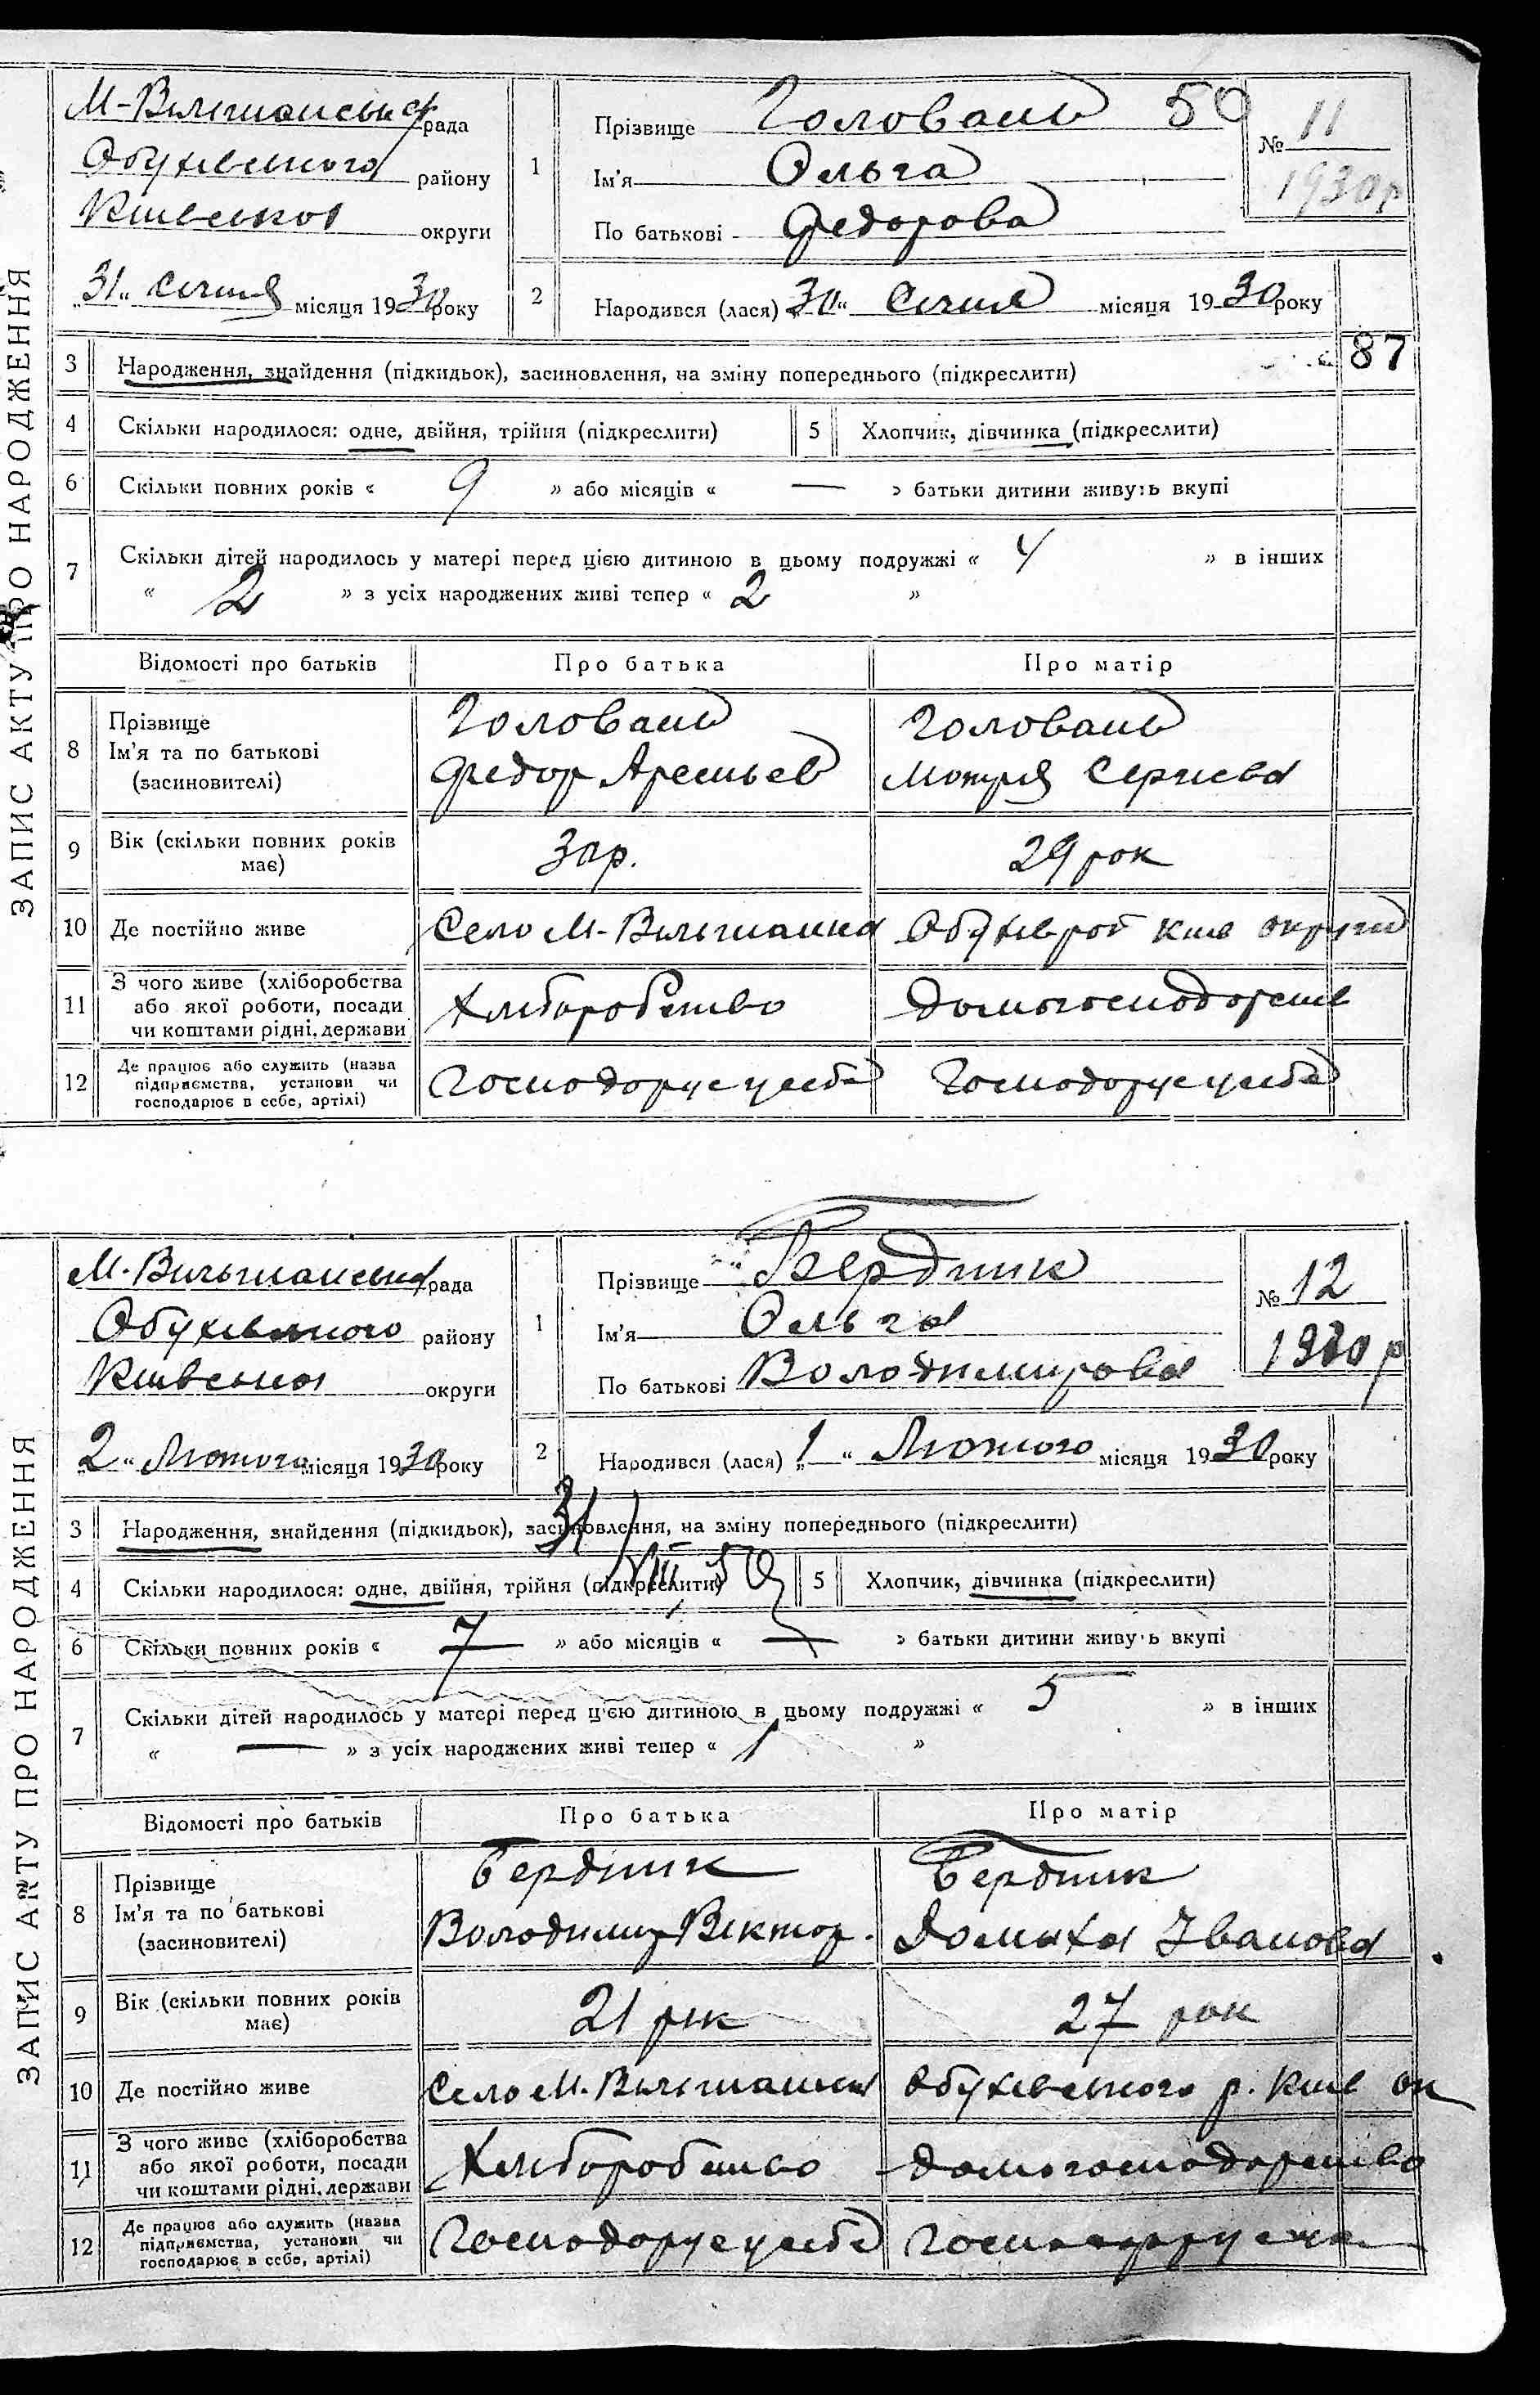 ЗАПИС АКТУ ПРО НАРОДЖЕННЯ
М-Вільшанська рада
Обухівського району
Київської округи
"31" Січня місяця 1930 року
1 Прізвище Головань 50
Ім'я Ольга
По батькові Федорова
№ 11
1930 р
2 Народився (лася) "30" Січня місяця 1930 року
87
3 Народження, знайдення (підкидьок), засиновлення, на зміну попереднього (підкреслити)
4 Скільки народилося: одне, двійня, трійня (підкреслити) 5 Хлопчик, дівчинка (підкреслити)
6 Скільки повних років « 9 » або місяців « — » батьки дитини живуть вкупі
7 Скільки дітей народилось у матері перед цією дитиною в цьому подружжі « 4 » в інших
« 2 » з усіх народжених живі тепер « 2 »
Відомості про батьків Про батька Про матір
8 Прізвище Головань Головань
Ім'я та по батькові Федор Арсеньев Мотря Сергиева
(засиновителі)
9 Вік (скільки повних років має) 30 р. 29 рок
10 Де постійно живе Село М-Вільшанка Обухів рой Київ округи
11 З чого живе (хліборобства або якої роботи, посади чи коштами рідні, держави Хліборобство Домогосподорств
12 Де працює або служить (назва підприємства, установи чи господарює в себе, артілі) Господорує у себе Господорує у себе
ЗАПИС АКТУ ПРО НАРОДЖЕННЯ
М-Вільшанська рада
Обухівського району
Київської округи
"2" Лютого місяця 1930 року
1 Прізвище Бердник
Ім'я Ольга
По батькові Володимирова
№ 12
1930 р
2 Народився (лася) "1" Лютого місяця 1930 року
3 Народження, знайдення (підкидьок), засиновлення, на зміну попереднього (підкреслити)
31/VIII 50
4 Скільки народилося: одне, двійня, трійня (підкреслити) 5 Хлопчик, дівчинка (підкреслити)
6 Скільки повних років « 7 » або місяців « — » батьки дитини живуть вкупі
7 Скільки дітей народилось у матері перед цією дитиною в цьому подружжі « 5 » в інших
« — » з усіх народжених живі тепер « 1 »
Відомості про батьків Про батька Про матір
8 Прізвище Бердник Бердник
Ім'я та по батькові Володимир Віктор. Домаха Іванова
(засиновителі)
9 Вік (скільки повних років має) 21 рік 27 рок
10 Де постійно живе Село М. Вільшанка Обухівського р. Київ ок
11 З чого живе (хліборобства або якої роботи, посади чи коштами рідні, держави Хліборобство Домогосподорство
12 Де працює або служить (назва підприємства, установи чи господарює в себе, артілі) Господорує у себе